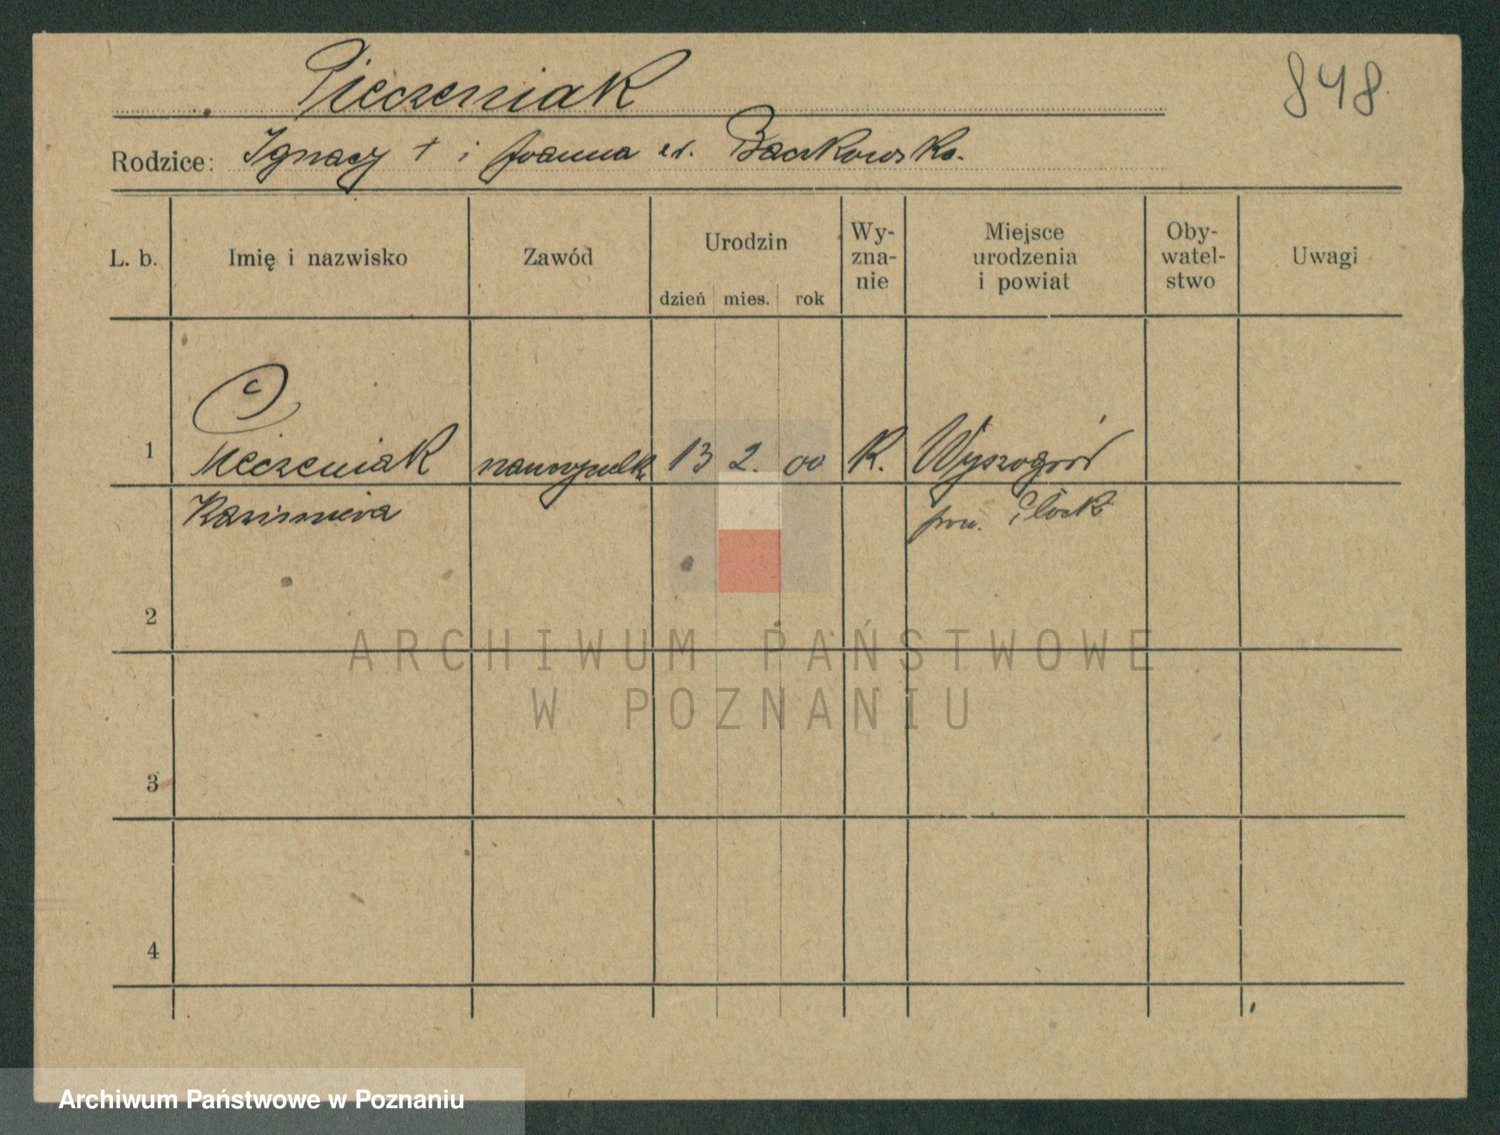 Pieczeniak
848
Rodzice: Ignacy + i Joanna
L. b.
Imię i nazwisko
Zawód
Urodzin
dzień mies. rok
Wy-
zna-
nie
Miejsce
urodzenia
i powiat
Oby-
watel-
stwo
Uwagi
1
Pieczeniak
13 2. 00
K.
Wyszogród
Kazimiera
pow. Płock
2
3
4
ARCHIWUM PAŃSTWOWE
W POZNANIU
Archiwum Państwowe w Poznaniu